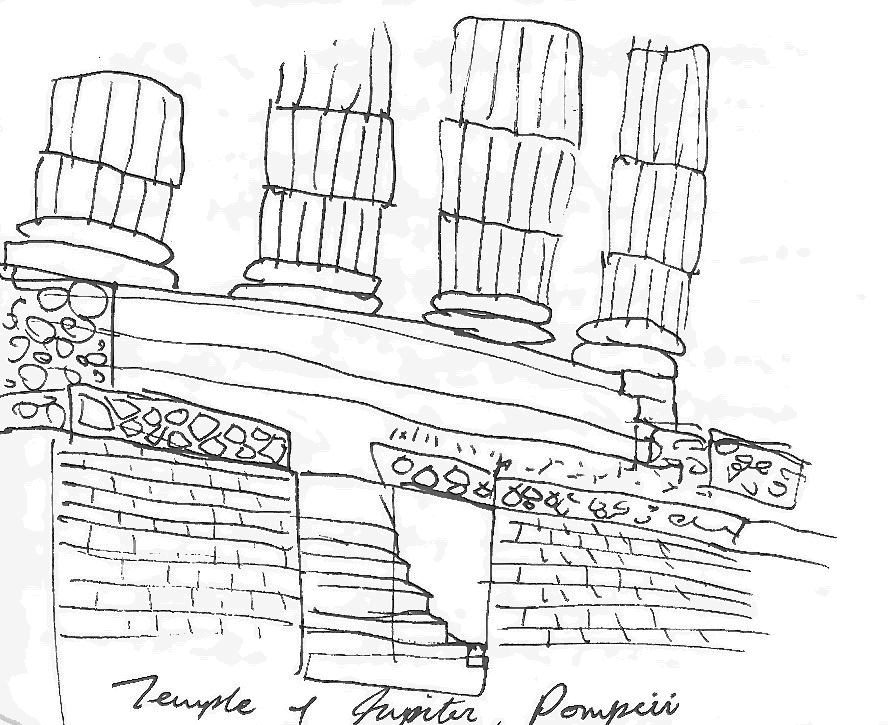 Temple of Jupiter, Pompeii